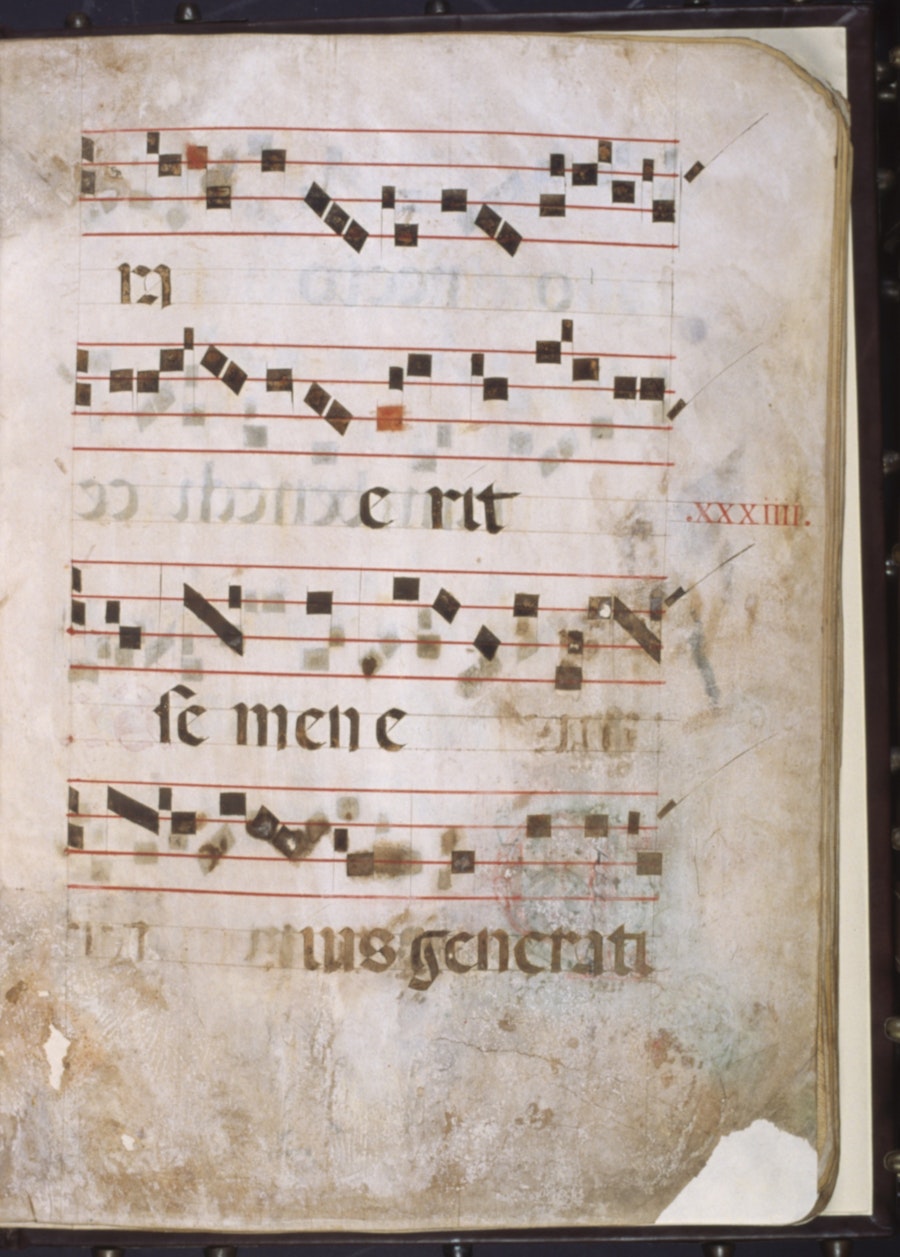 in
e rit
.XXXIIII.
se men e
ius generati